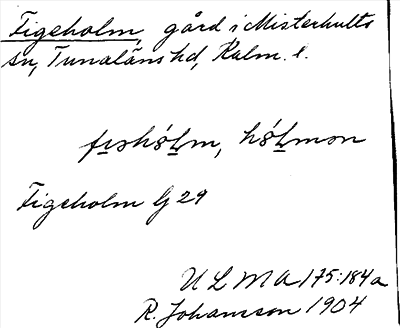 Figeholm, gård i Misterhults
sn, Tunaläns hd, Kalm. l.
Figeholm Gj 29
ULMA 175:184a
R. Johansson 1904